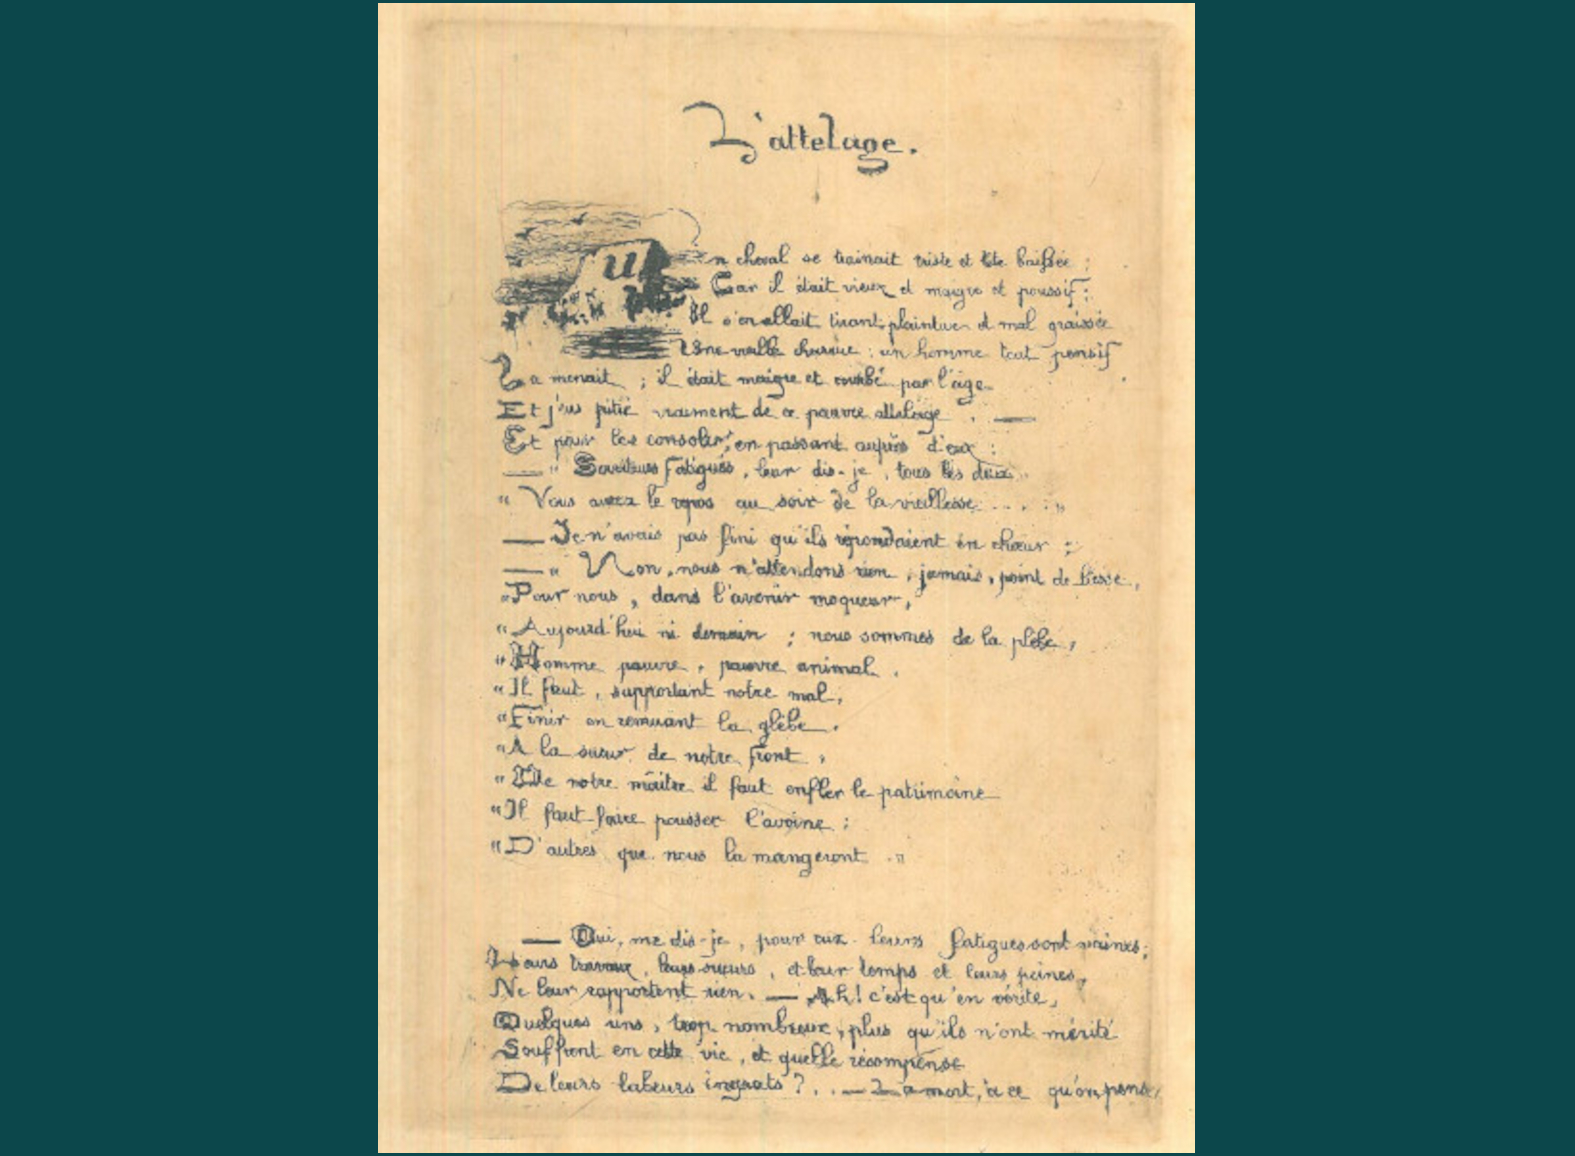 L'attelage.
Un cheval se trainait triste et tête baissée ;
Car il était vieux et maigre et poussif ;
Il s'en allait tirant plaintive et mal graissée
Une vieille charrue ; un homme tout pensif
La menait ; il était maigre et courbé par l'âge
Et j'eus pitié vraiment de ce pauvre attelage . —
Et pour les consoler, en passant auprès d'eux :
— " Serviteurs fatigués, leur dis-je, tous les deux
" Vous aurez le repos au soir de la vieillesse . . . . "
— Je n'avais pas fini qu'ils répondaient en chœur :
— " Non, nous n'attendons rien, jamais, point de
" Pour nous, dans l'avenir moqueur,
" Aujourd'hui ni demain ; nous sommes de la plèbe,
" Homme pauvre, pauvre animal,
" Il faut, supportant notre mal,
" Finir en remuant la glèbe.
" A la sueur de notre front,
" De notre maître il faut enfler le patrimoine
" Il faut faire pousser l'avoine :
" D'autres que nous la mangeront . "
— Oui, me dis-je, pour eux leurs fatigues sont vaines,
Leurs travaux, leurs sueurs, et leur temps et leurs peines,
Ne leur rapportent rien. — Ah ! c'est qu'en vérité,
Quelques uns, trop nombreux, plus qu'ils n'ont mérité
Souffrent en cette vie, et quelle récompense
De leurs labeurs ingrats ? . . — La mort, à ce qu'on pense